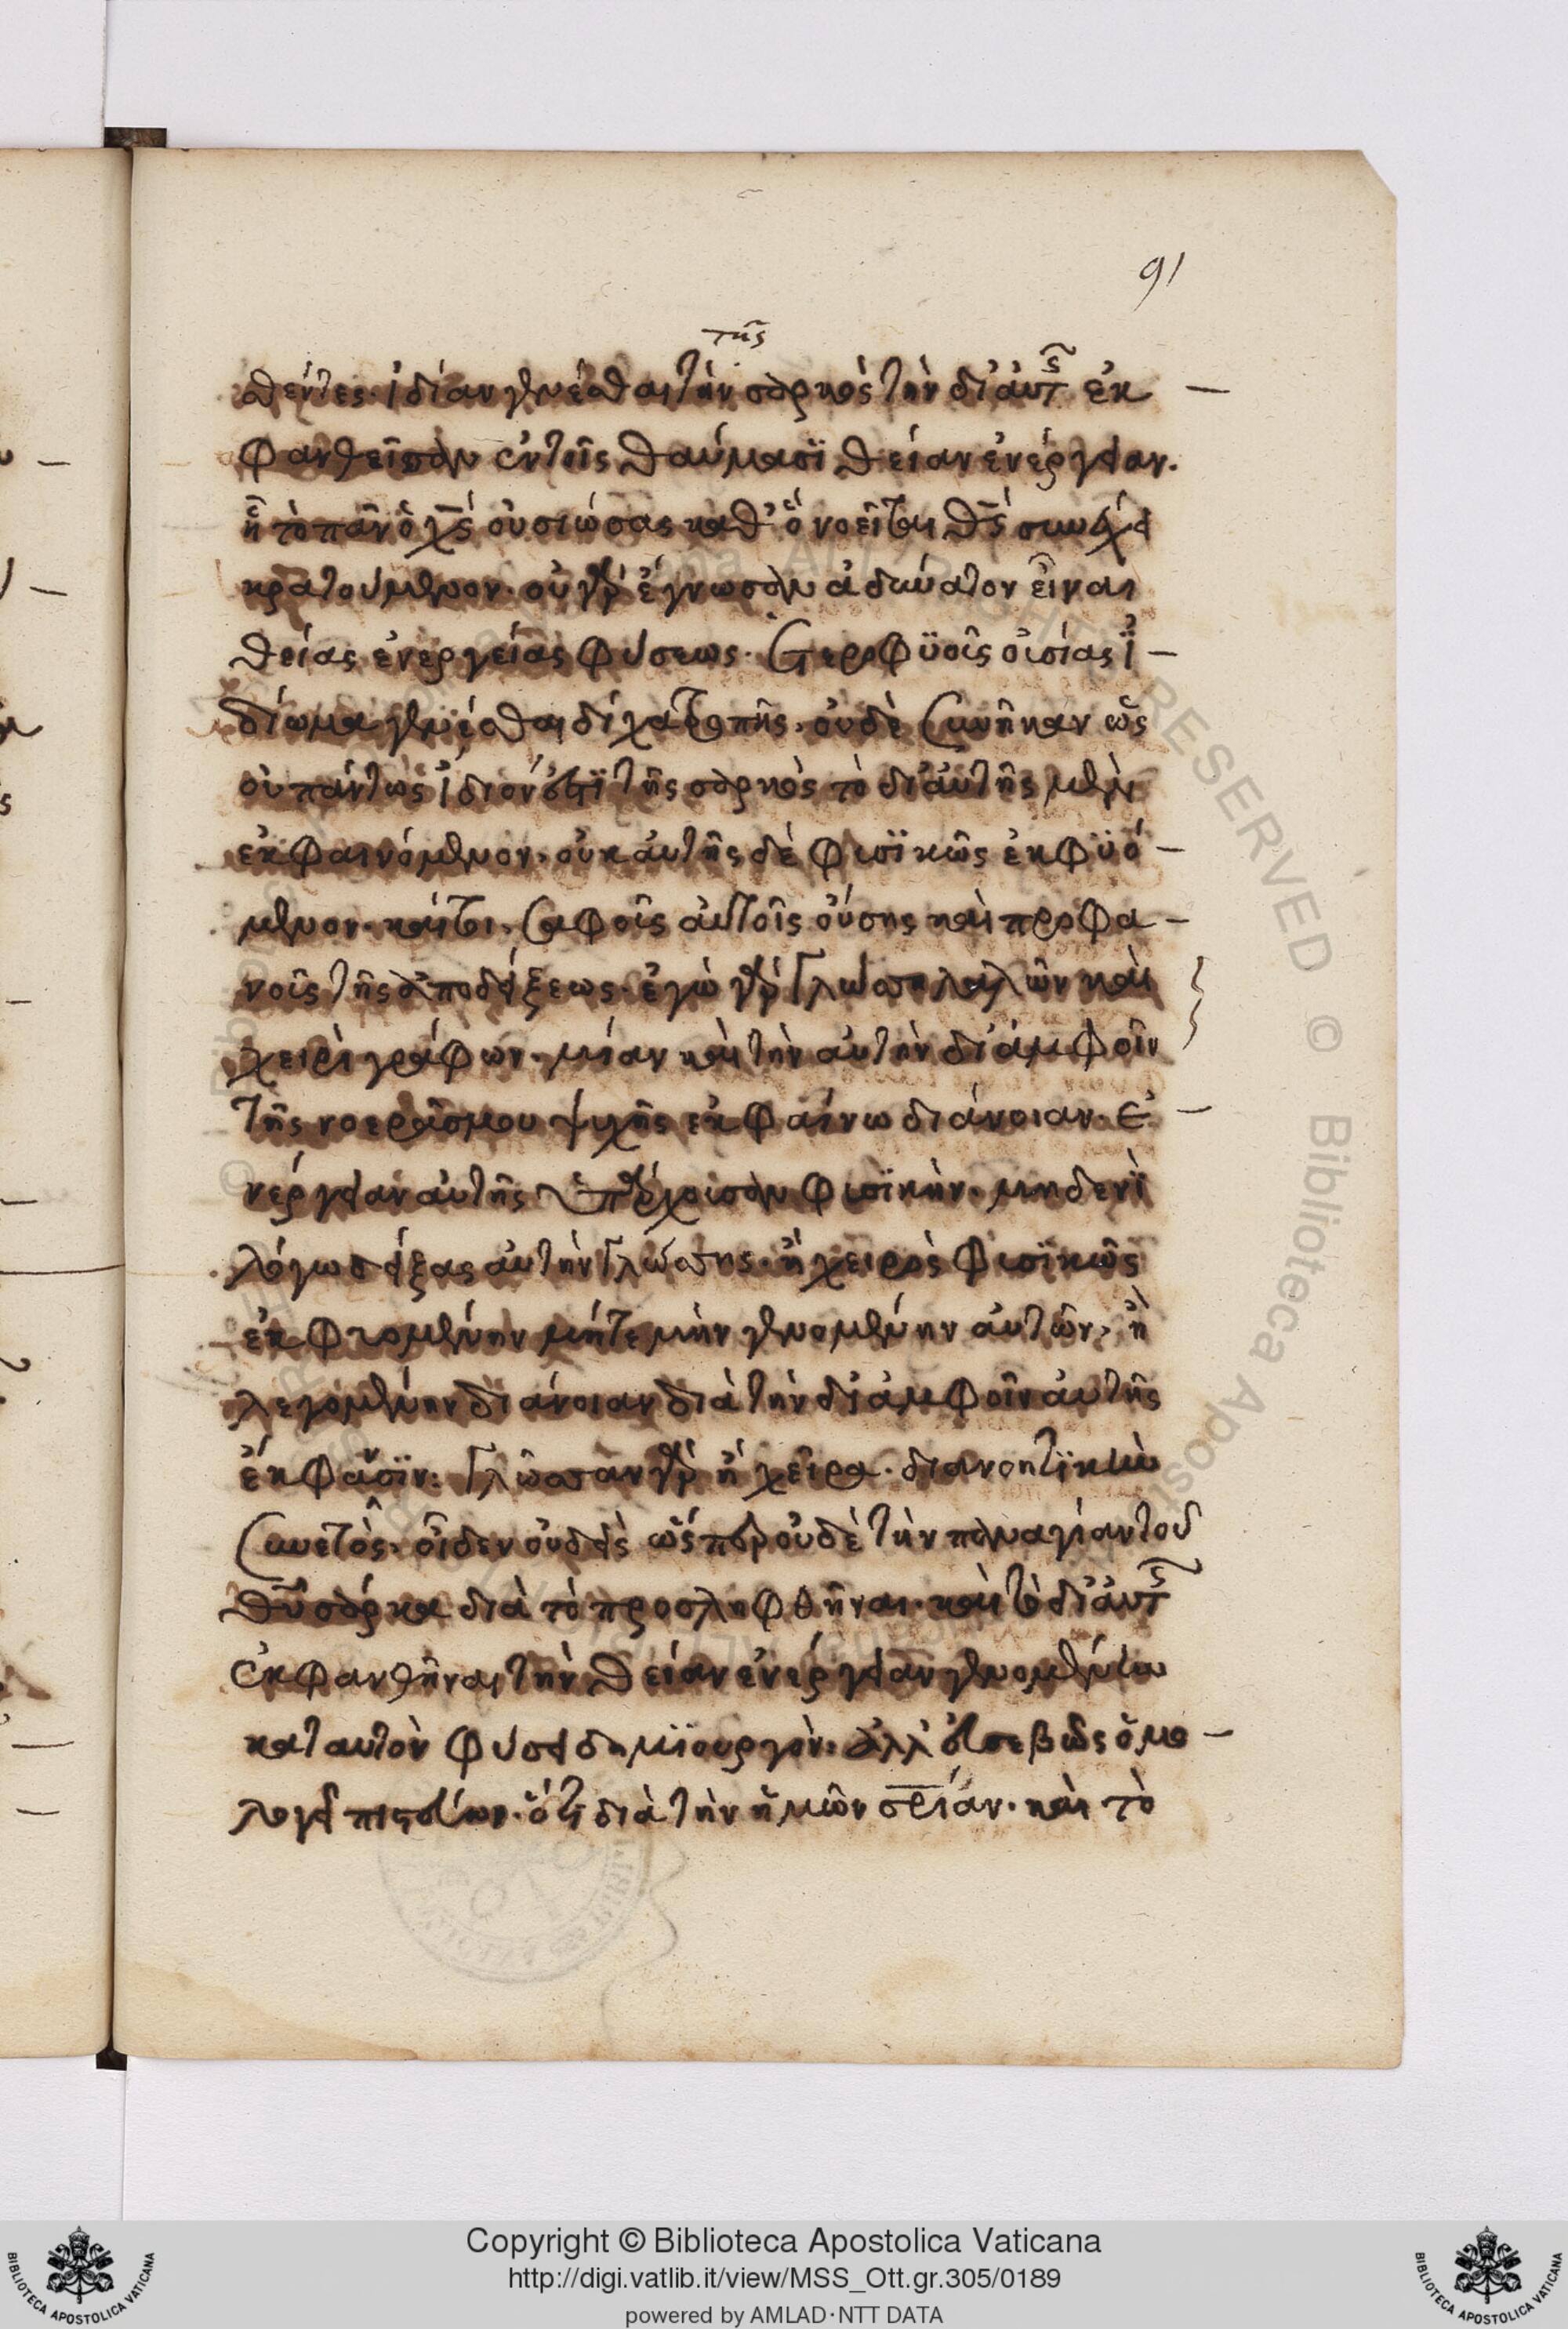 91
τῆς
θέντες· ἰδίαν γενέσθαι τὴν σαρκὸς τὴν δι' αὐτῆς ἐκ –
φανθεῖσαν ἐν τοῖς θαύμασι θείαν ἐνέργειαν.
ἢ τὸ πᾶν ὁ χς οὐσιώσας καθ' ὃ νοεῖται θς συνέχει
κρατούμενον· οὐ γὰρ ἔγνωσαν ἀδύνατον εἶναι
θείας ἐνεργείας φύσεως· ἑτεροφυοῖς οὐσίας ἰ –
δίωμα γενέσθαι δίχα τροπῆς· οὐδὲ συνῆκαν ὡς
οὐ πάντως ἴδιόν ἐστι τῆς σαρκὸς τὸ δι' αὐτῆς μὲν
ἐκφαινόμενον· οὐκ αὐτῆς δὲ φυσικῶς ἐκφυό –
μενον· καίτοι, σαφοῖς αὐτοῖς οὔσης καὶ προφα –
νοῖς τῆς ἀποδείξεως· ἐγὼ γὰρ γλώσση λαλῶν καὶ
χειρὶ γράφων· μίαν καὶ τὴν αὐτὴν δι' ἀμφοῖν
τῆς νοερᾶς μου ψυχῆς ἐκφαίνω διάνοιαν· ἐ –
νέργειαν αὐτῆς ὑπάρχουσαν φυσικήν· μηδενὶ
λόγω δείξας αὐτὴν γλώσσης· ἢ χειρὸς φυσικῶς
ἐκφυομένην μήτε μὴν γενομένην αὐτῶν, ἢ
λεγομένην διάνοιαν διὰ τὴν δι' ἀμφοῖν αὐτῆς
ἔκφανσιν· γλῶσσαν γὰρ ἢ χεῖρα· διανοητικὴν
συνετὸς· οἶδεν οὐδεὶς ὥσπερ οὐδὲ τὴν παναγίαν τοῦ
θυ σάρκα διὰ τὸ προσληφθῆναι· καὶ τὸ δι' αὐτῆς
ἐκφανθῆναι τὴν θείαν ἐνέργειαν γενομένην
κατ αυτὸν φύσει δημιουργὸν· ἀλλ' εὐσεβῶς ὁμο –
λογεῖ πιστεύων· ὅτι διὰ τὴν ἡμῶν σριάν· καὶ τὸ
Copyright © Biblioteca Apostolica Vaticana
http://digi.vatlib.it/view/MSS_Ott.gr.305/0189
powered by AMLAD·NTT DATA